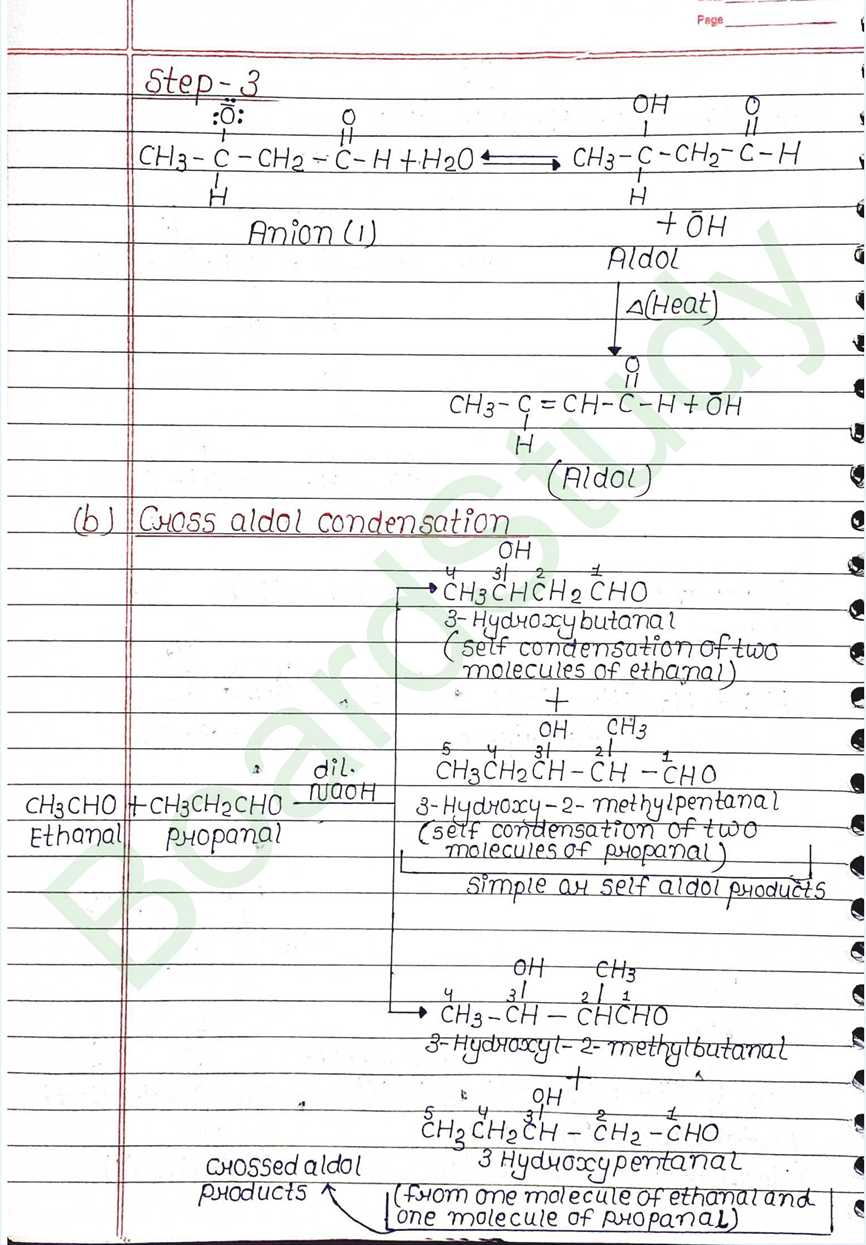 Page
Step-3
:Ö: O
CH3-C-CH2-C-H+H2O ⇌ CH3-C-CH2-C-H
H
Anion (1)
OH O
H
+ ŌH
Aldol
Δ(Heat)
O
CH3-C=CH-C-H+ŌH
H
(Aldol)
(b) Cross aldol condensation
OH
4 3 2 1
CH3CHCH2CHO
3-Hydroxybutanal
(self condensation of two
molecules of ethanal)
+
OH CH3
5 4 3 2 1
CH3CH2CH-CH-CHO
3-Hydroxy-2-methylpentanal
(self condensation of two
molecules of propanal)
simple or self aldol products
CH3CHO+CH3CH2CHO
dil.
NaOH
Ethanal propanal
OH CH3
4 3 2 1
CH3-CH-CHCHO
3-Hydroxyl-2-methylbutanal
+
OH
5 4 3 2 1
CH3CH2CH-CH2-CHO
3 Hydroxypentanal
crossed aldol
products
(from one molecule of ethanal and
one molecule of propanal)
BoardStudy